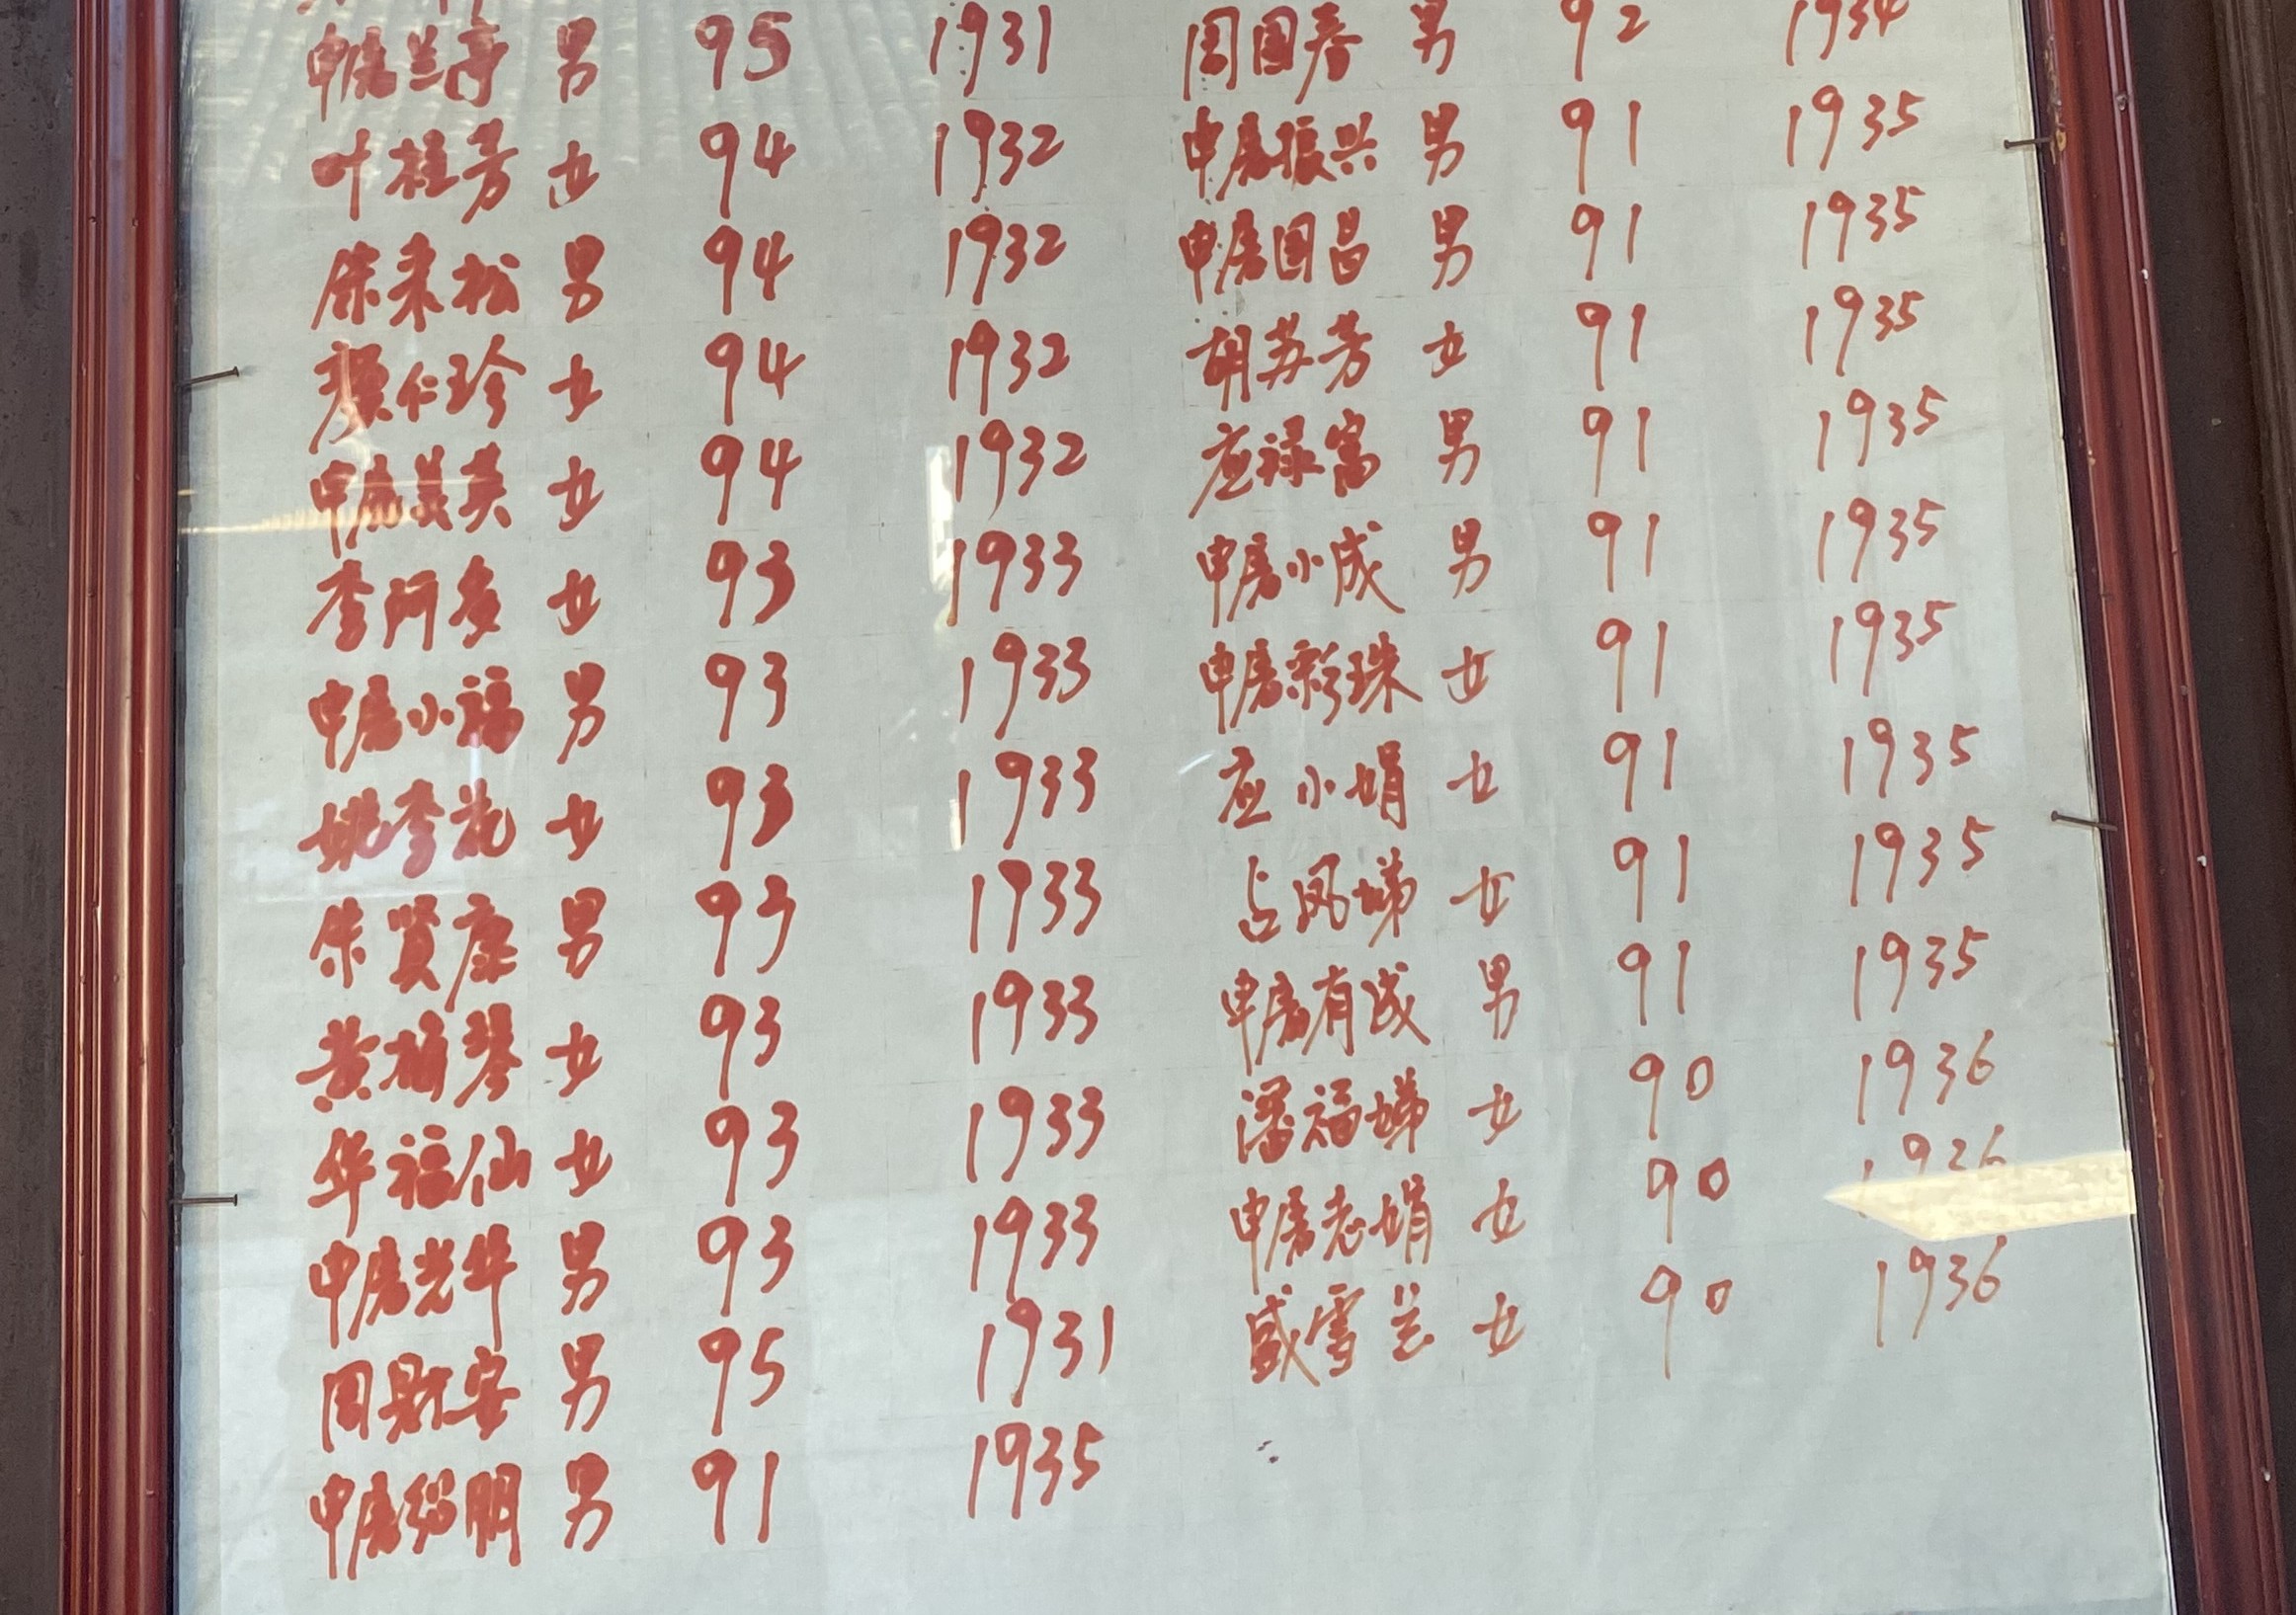 申屠兰亭 男 95 1931
叶桂芳 女 94 1932
松 男 94 1932
仁珍 女 94 1932
申屠美英 女 94 1932
李阿多 女 93 1933
申屠小福 男 93 1933
姚李花 女 93 1933
朱贤康 男 93 1933
黄梅琴 女 93 1933
华福仙 女 93 1933
申屠光华 男 93 1933
周财安 男 95 1931
申屠绍明 男 91 1935
周国春 男 92 1934
申屠振兴 男 91 1935
申屠国昌 男 91 1935
胡苏芳 女 91 1935
应禄富 男 91 1935
申屠小成 男 91 1935
申屠彩珠 女 91 1935
应小娟 女 91 1935
占凤娣 女 91 1935
申屠有成 男 91 1935
潘福娣 女 90 1936
申屠老娟 女 90 1936
盛雪兰 女 90 1936